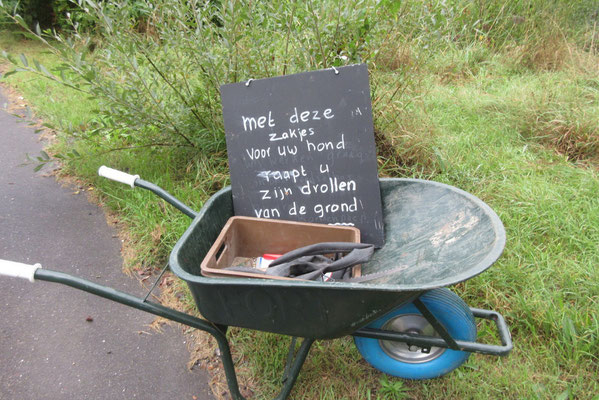 met deze
zakjes
voor uw hond
raapt u
zijn drollen
van de grond